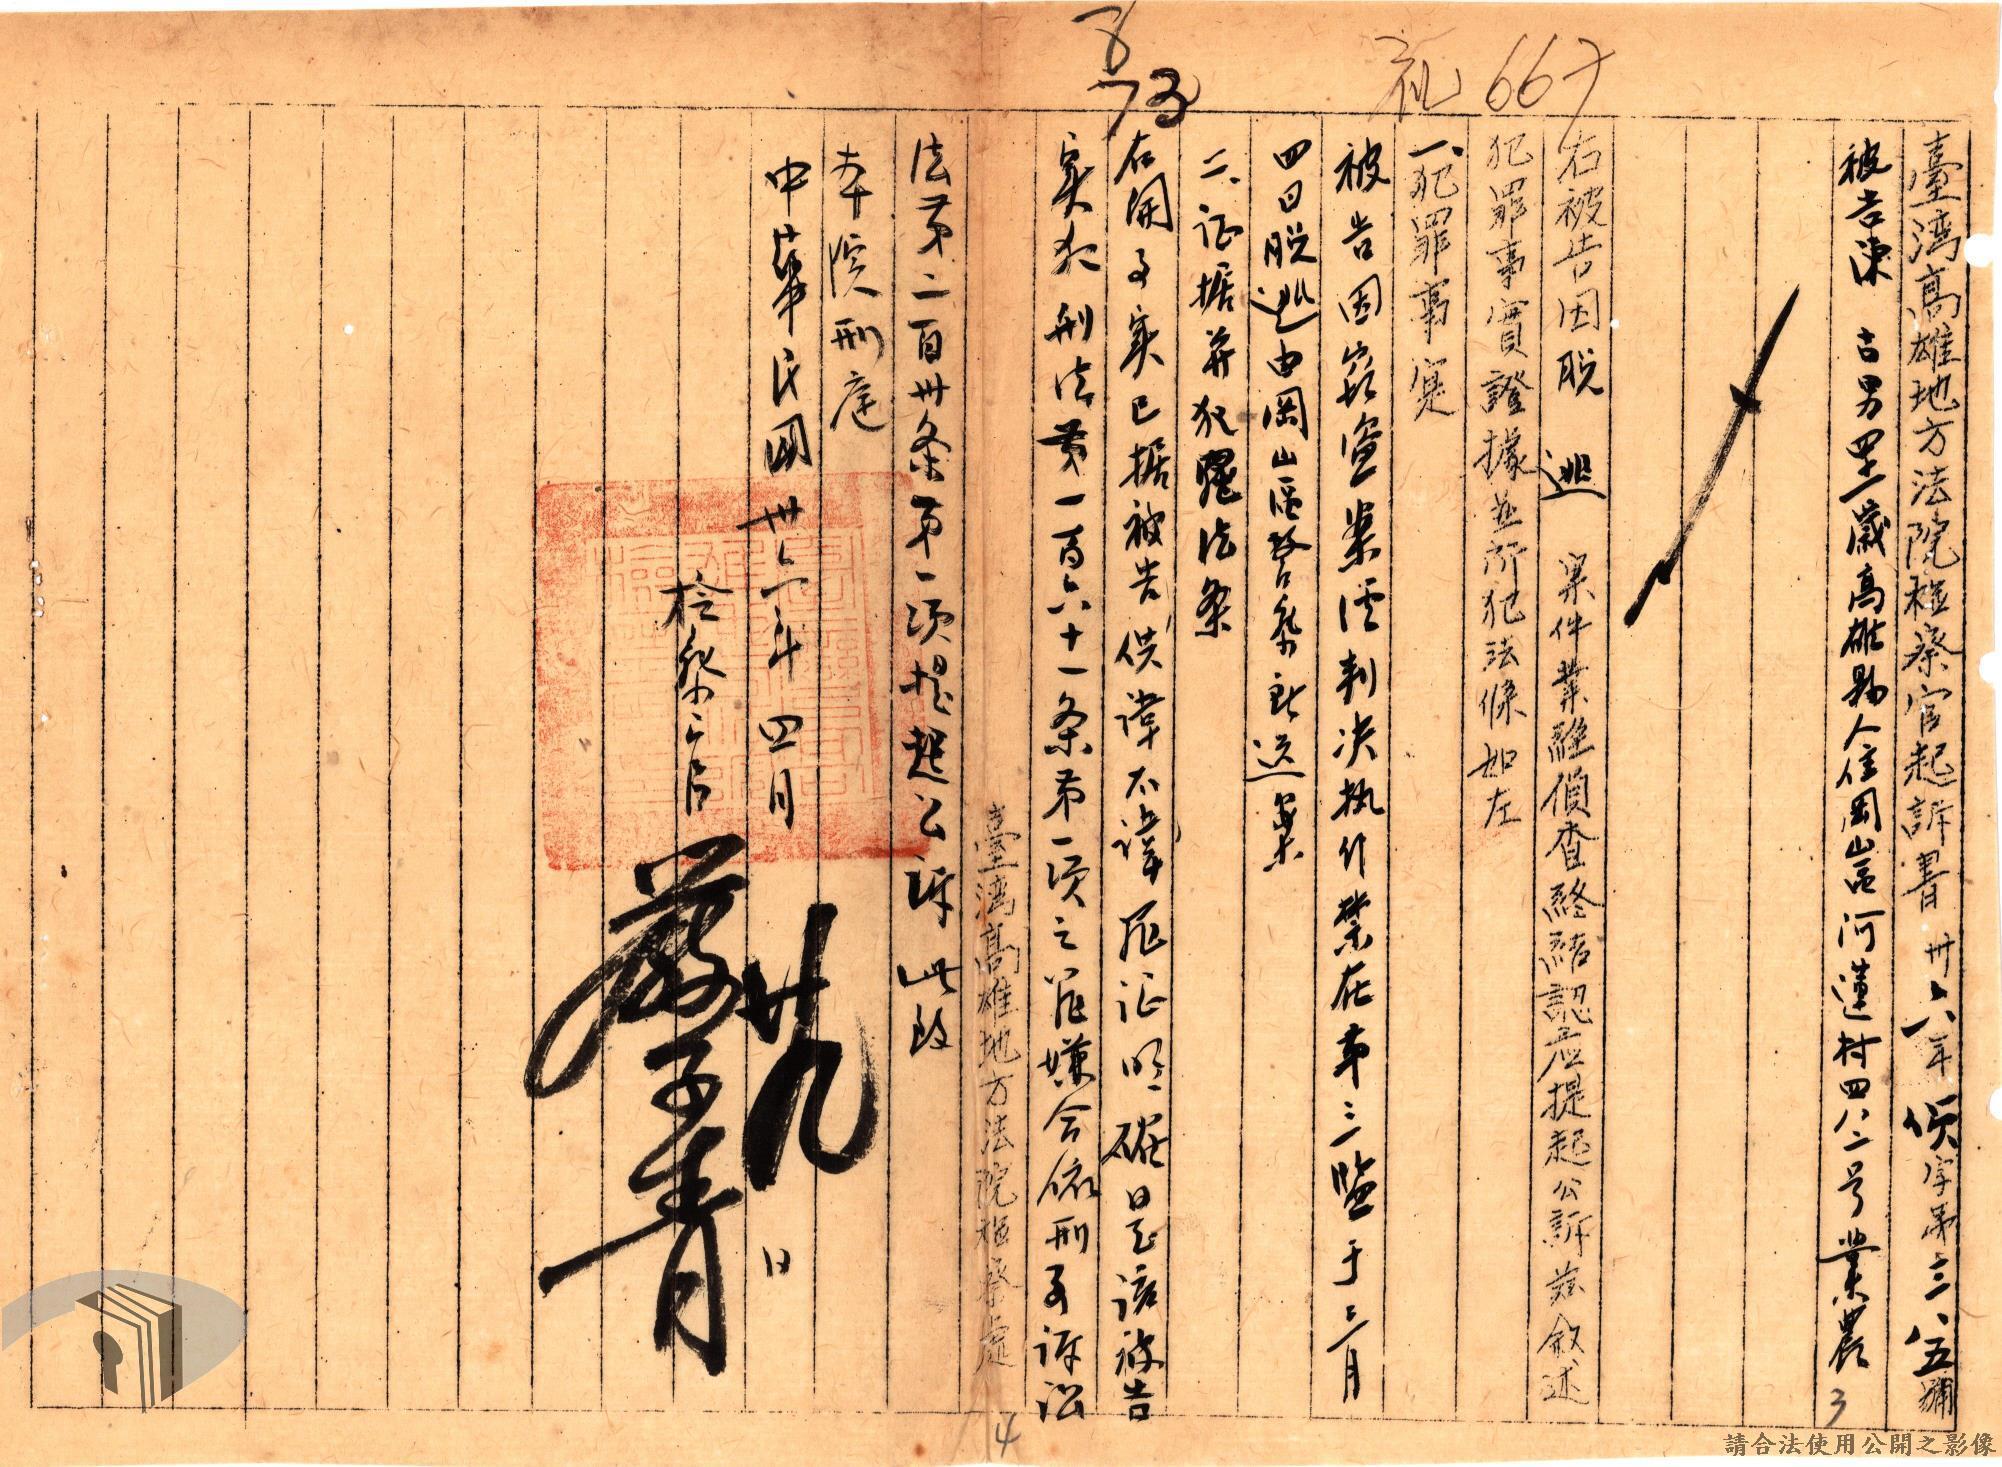 臺灣高雄地方法院檢察官起訴書 卅六年偵字第三八五號
被告陳 古男四一歲高雄縣人住岡山區河蓮村四八二号業農
右被告因脱逃案件業經偵查終結認應提起公訴茲叙述
犯罪事實證據並所犯法條如左
一、犯罪事實
被告因竊盗案经判决执行禁在第三監于三月
四日脱逃由岡山區警察所送案
二、证据并犯罪法条
右開事实已据被告供諱不諱罪证明確是該被告
实犯刑法第一百六十一条第一項之罪嫌合依刑事訴訟
法第二百卅条第一項提起公訴此致
本院刑庭
中華民國卅六年四月廿九日
檢察官
臺灣高雄地方法院檢察處
73
667
3
4
請合法使用公開之影像